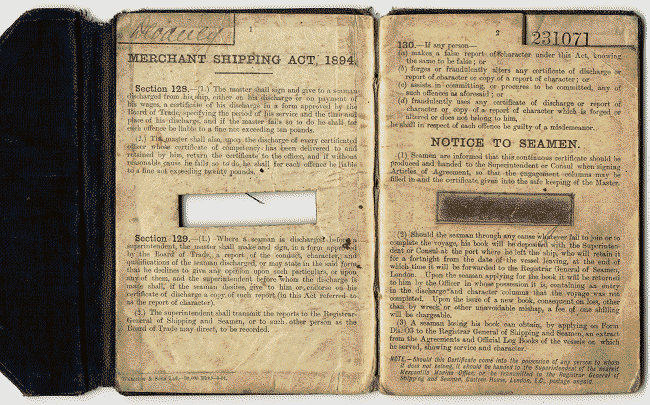 1
MERCHANT SHIPPING ACT, 1894.
Section 128.—(1.) The master shall sign and give to a seaman
discharged from his ship, either on his discharge or on payment of
his wages, a certificate of his discharge in a form approved by the
Board of Trade, specifying the period of his service and the time and
place of his discharge, and if the master fails so to do he shall for
each offence be liable to a fine not exceeding ten pounds.
(2.) The master shall also, upon the discharge of every certificated
officer whose certificate of competency has been delivered to and
retained by him, return the certificate to the officer, and if without
reasonable cause he fails so to do, he shall for each offence be liable
to a fine not exceeding twenty pounds.
Section 129.—(1.) Where a seaman is discharged before a
superintendent, the master shall make and sign, in a form approved
by the Board of Trade, a report of the conduct, character, and
qualifications of the seaman discharged, or may state in the said form
that he declines to give any opinion upon such particulars, or upon
any of them, and the superintendent before whom the discharge is
made shall, if the seaman desires, give to him or endorse on the
certificate of discharge a copy of such report (in this Act referred to
as the report of character).
(2.) The superintendent shall transmit the reports to the Registrar-
General of Shipping and Seamen, or to such other person as the
Board of Trade may direct, to be recorded.
2
231071
130.—If any person—
(a) makes a false report of character under this Act, knowing
the same to be false; or
(b) forges or fraudulently alters any certificate of discharge or
report of character or copy of a report of character; or
(c) assists in committing, or procures to be committed, any of
such offences as aforesaid; or
(d) fraudulently uses any certificate of discharge or report of
character or copy of a report of character which is forged or
altered or does not belong to him,
he shall in respect of each offence be guilty of a misdemeanor.
NOTICE TO SEAMEN.
(1) Seamen are informed that this continuous certificate should be
produced and handed to the Superintendent or Consul when signing
Articles of Agreement, so that the engagement columns may be
filled in and the certificate given into the safe keeping of the Master.
(2) Should the seaman through any cause whatever fail to join or to
complete the voyage, his book will be deposited with the Superinten-
dent or Consul at the port where he left the ship, who will retain it
for a fortnight from the date of the vessel leaving, at the end of
which time it will be forwarded to the Registrar General of Seamen,
London. Upon the seaman applying for the book it will be returned
to him by the Officer in whose possession it is, containing an entry
in the discharge and character columns that the voyage was not
completed. Upon the issue of a new book, consequent on loss, other
than by wreck or other unavoidable mishap, a fee of one shilling
will be chargeable.
(3) A seaman losing his book can obtain, by applying on Form
Dis. 03 to the Registrar General of Shipping and Seamen, an extract
from the Agreements and Official Log Books of the vessels on which
he served, showing service and character.
NOTE.—Should this Certificate come into the possession of any person to whom
it does not belong, it should be handed to the Superintendent of the nearest
Mercantile Marine Office, or be transmitted to the Registrar General of
Shipping and Seamen, Custom House, London, E.C., postage unpaid.